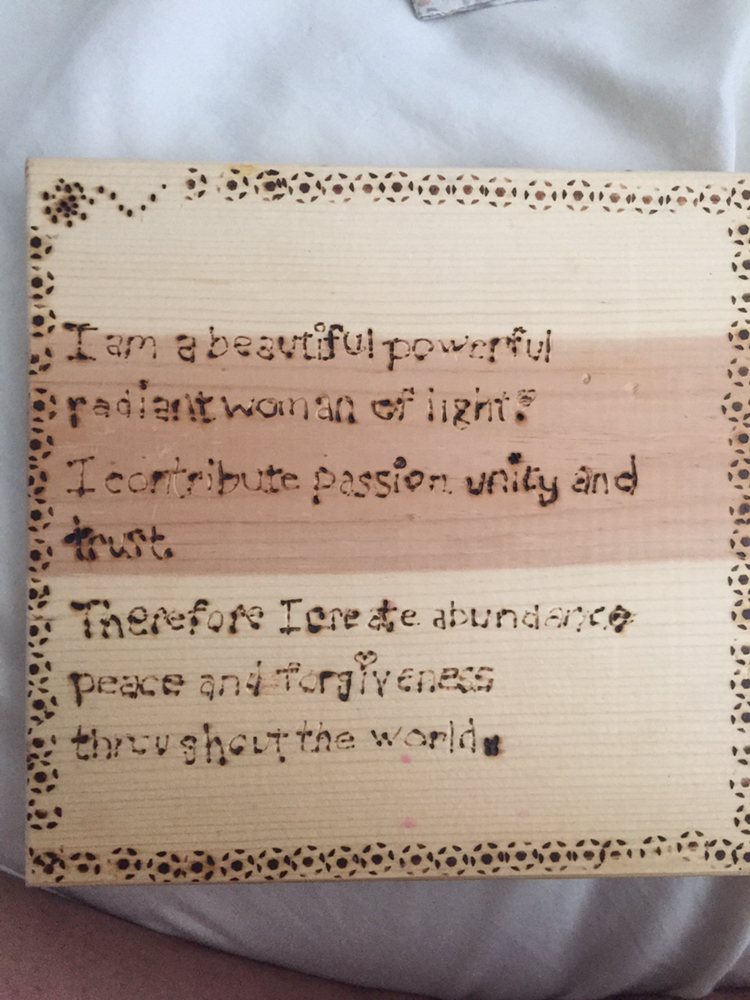 I am a beautiful powerful
radiant woman of light.
I contribute passion unity and
trust.
Therefore I create abundance
peace and forgiveness
throughout the world.